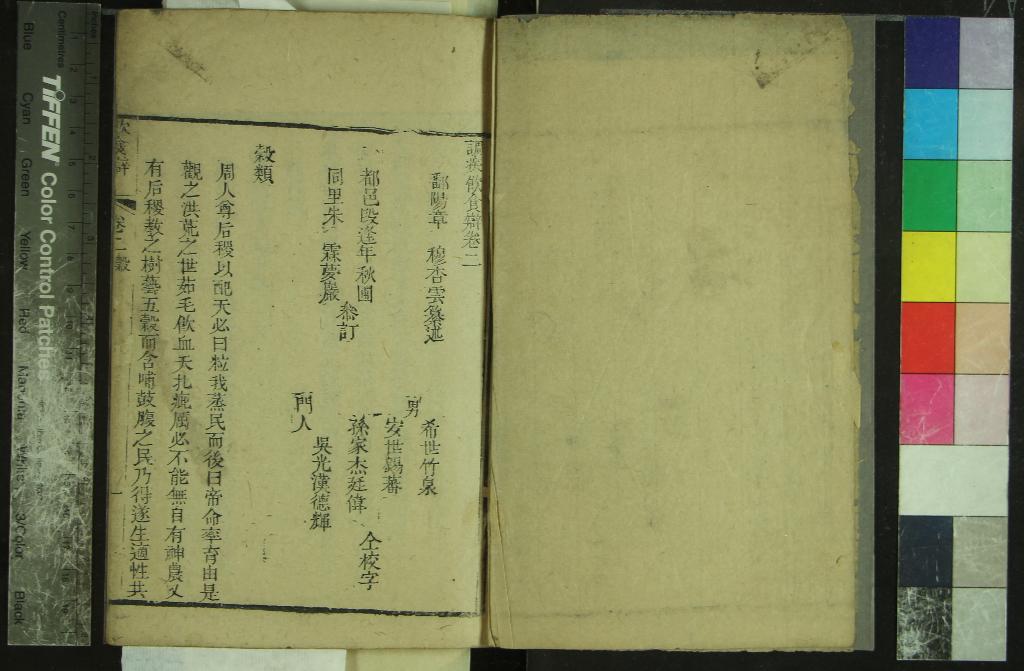 調疾飲食辯卷二
鄱陽章　穆杏雲纂述
男
希世竹泉
安世錫蕃
都邑段逢年秋圃
同里朱　霖夢巖
參訂
門人
孫家杰廷偉
吳光漢德輝
仝校字
穀類
周人尊后稷以配天必曰粒我蒸民而後曰帝命率育由是
觀之洪荒之世茹毛飲血夭扎疵厲必不能無自有神農又
有后稷教之樹藝五穀而含哺鼓腹之民乃得遂生適性共
飲食辯
卷二穀
一
Inches
Centimetres
TIFFEN Color Control Patches
Blue
Cyan
Green
Yellow
Red
Magenta
White
3/Color
Black